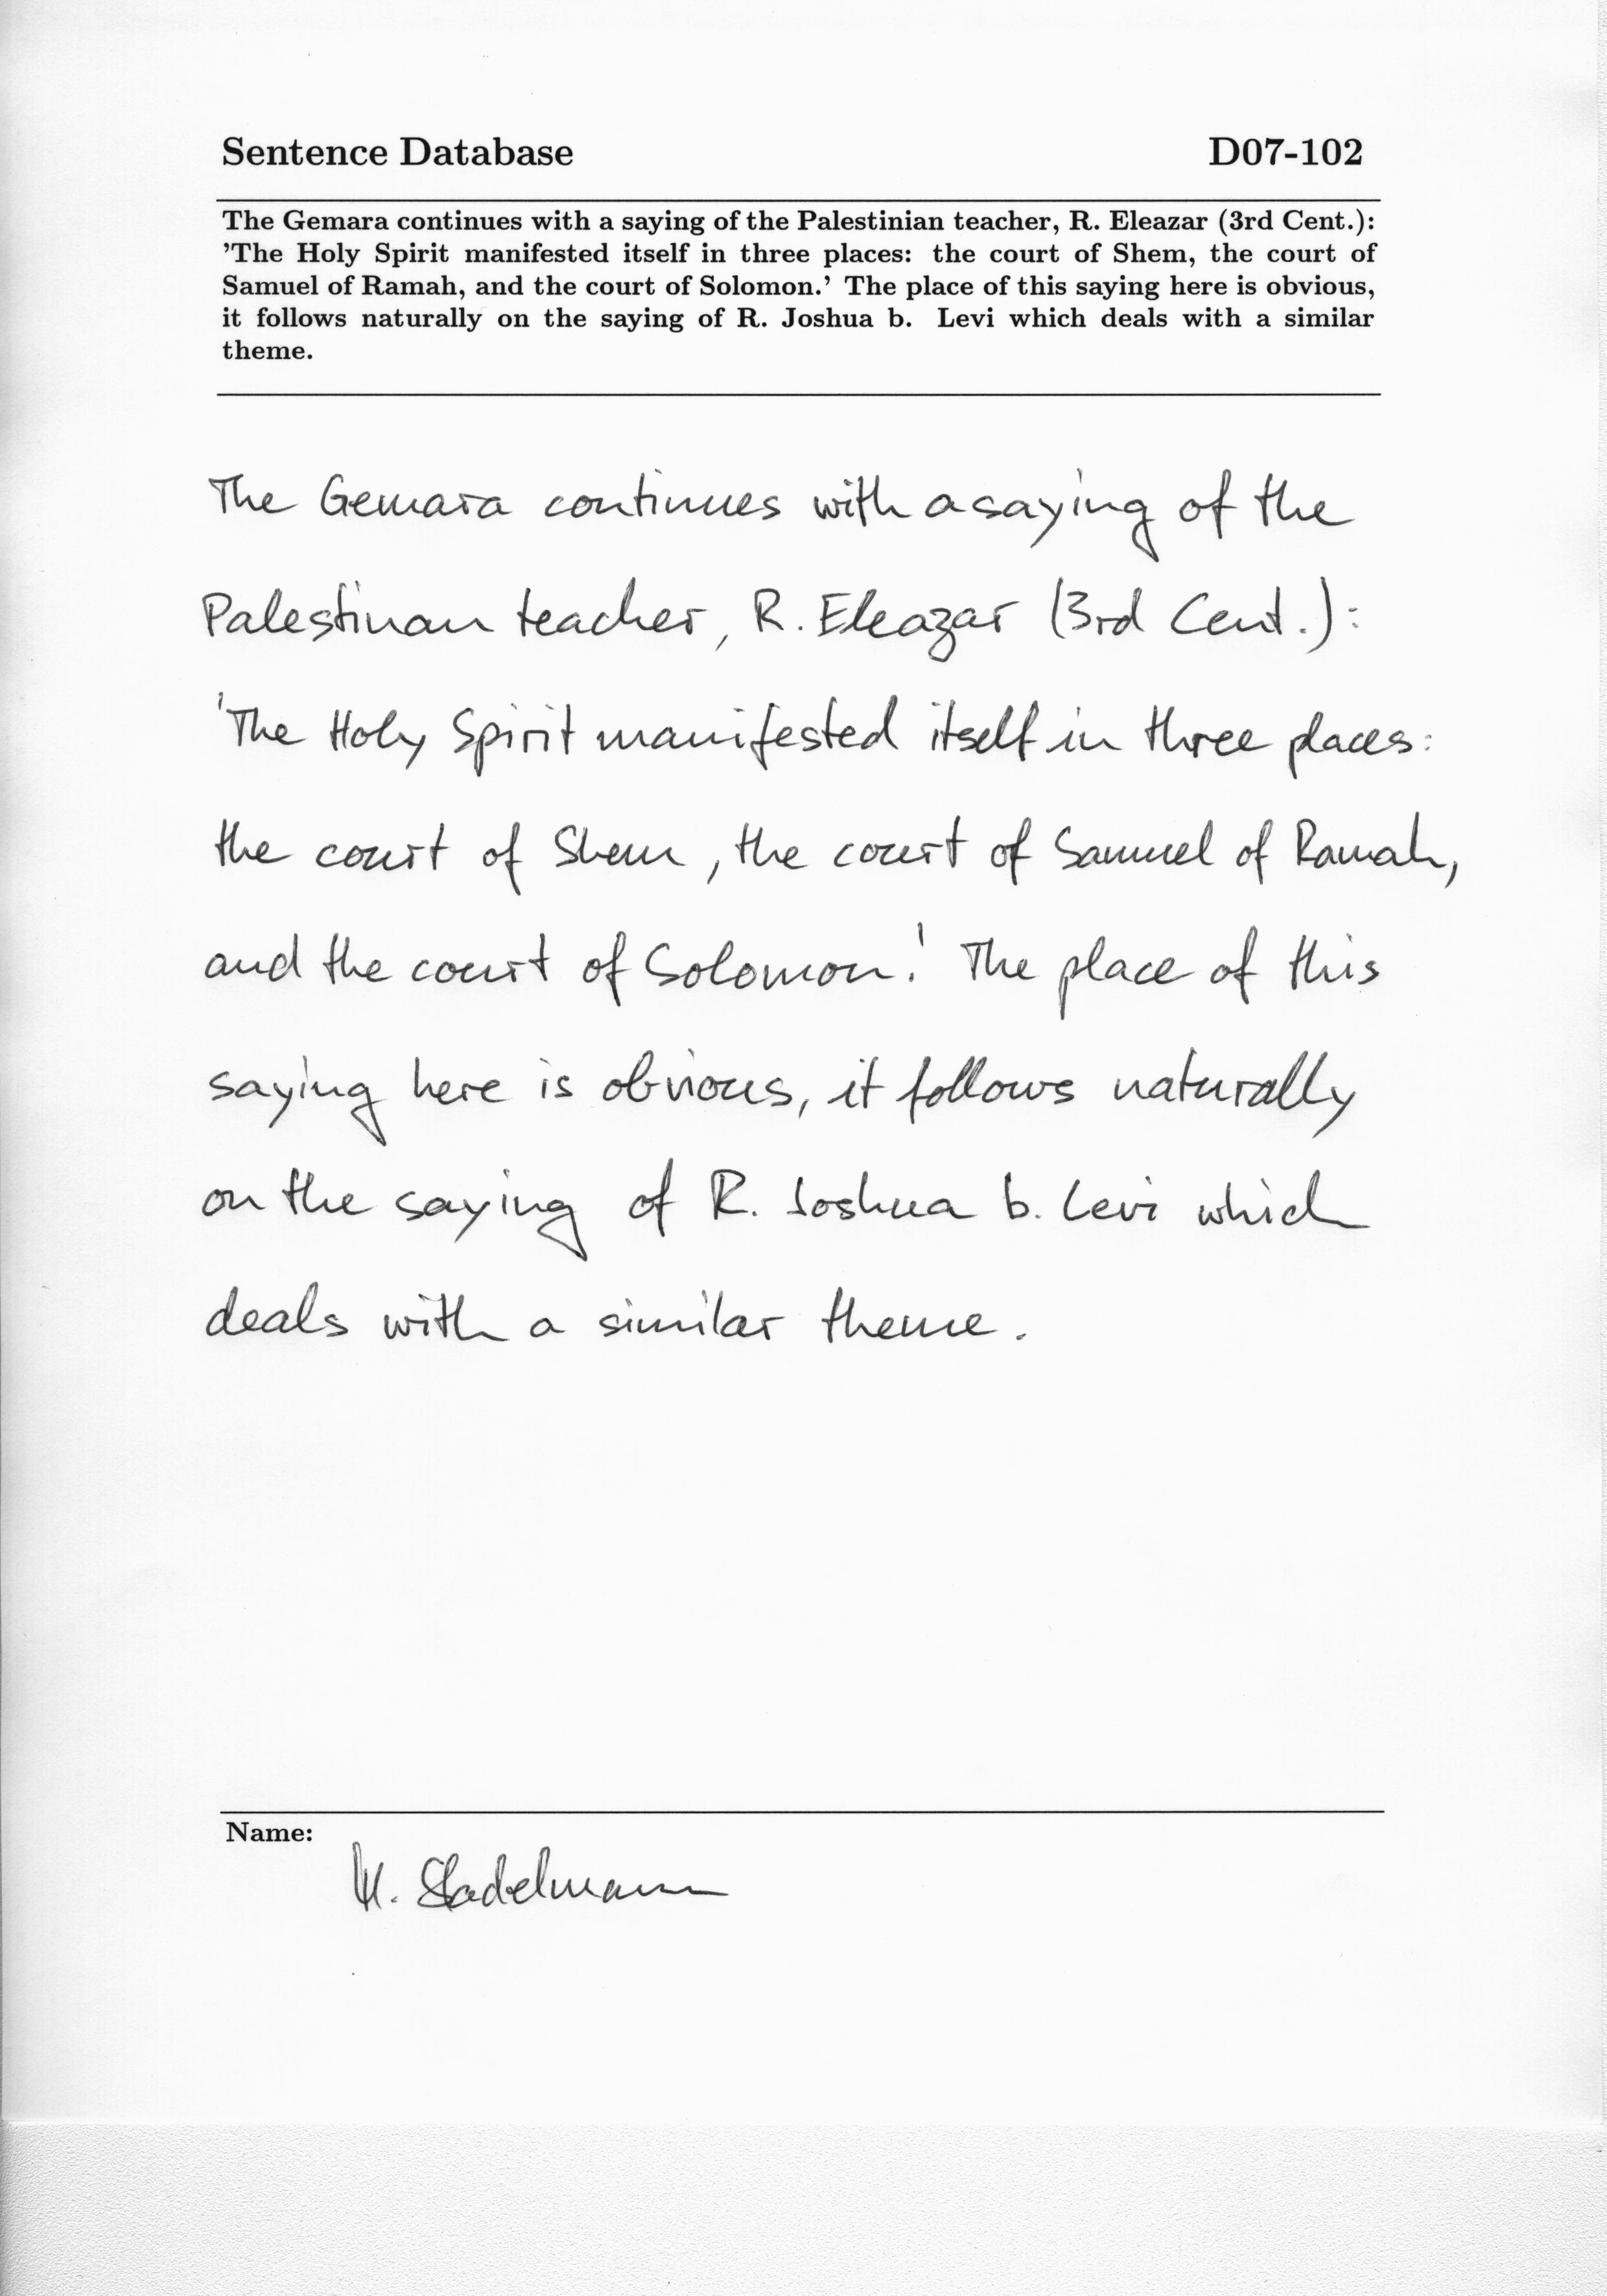 Sentence Database D07-102
The Gemara continues with a saying of the Palestinian teacher, R. Eleazar (3rd Cent.):
’The Holy Spirit manifested itself in three places: the court of Shem, the court of
Samuel of Ramah, and the court of Solomon.’ The place of this saying here is obvious,
it follows naturally on the saying of R. Joshua b. Levi which deals with a similar
theme.
The Gemara continues with a saying of the
Palestinan teacher, R. Eleazar (3rd Cent.):
'The Holy Spirit manifested itself in three places:
the court of Shem, the court of Samuel of Ramah,
and the court of Solomon.' The place of this
saying here is obvious, it follows naturally
on the saying of R. Joshua b. Levi which
deals with a similar theme.
Name:
Stadelmann